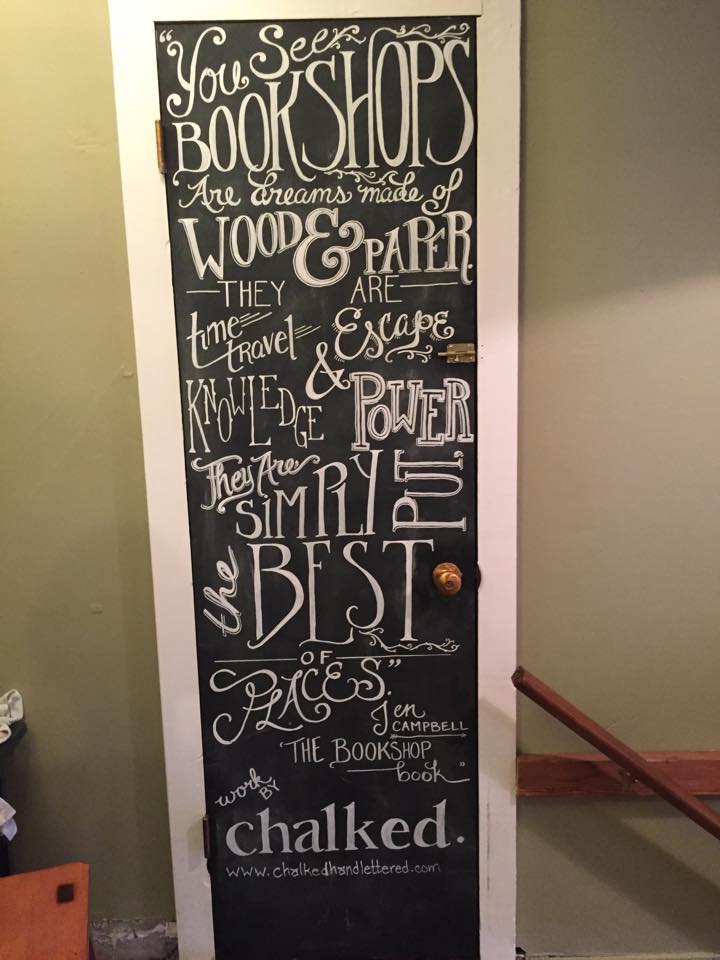 “You See
BOOKSHOPS
Are dreams made of
WOOD & PAPER.
THEY ARE
time travel Escape
&
KNOWLEDGE POWER
They Are
SIMPLY PUT,
the BEST
OF
PLACES.”
Jen
CAMPBELL
‘THE BOOKSHOP
book”
work
BY
chalked.
www.chalkedhandlettered.com